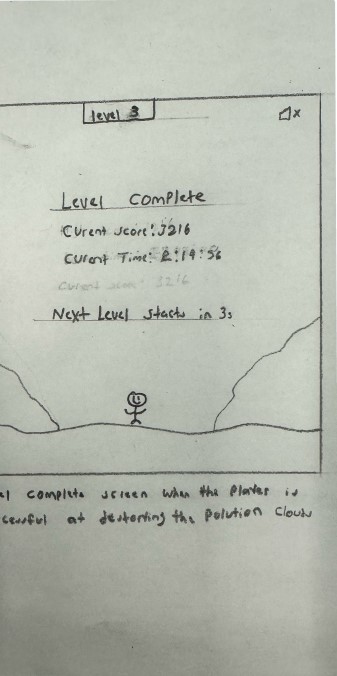 level 3
x
Level Complete
Curent score: 3216
Curent Time: 2:14:56
Curent score: 3216
Next Level starts in 3s
el complete screen when the player is
cessful at destorting the Polution Clouds